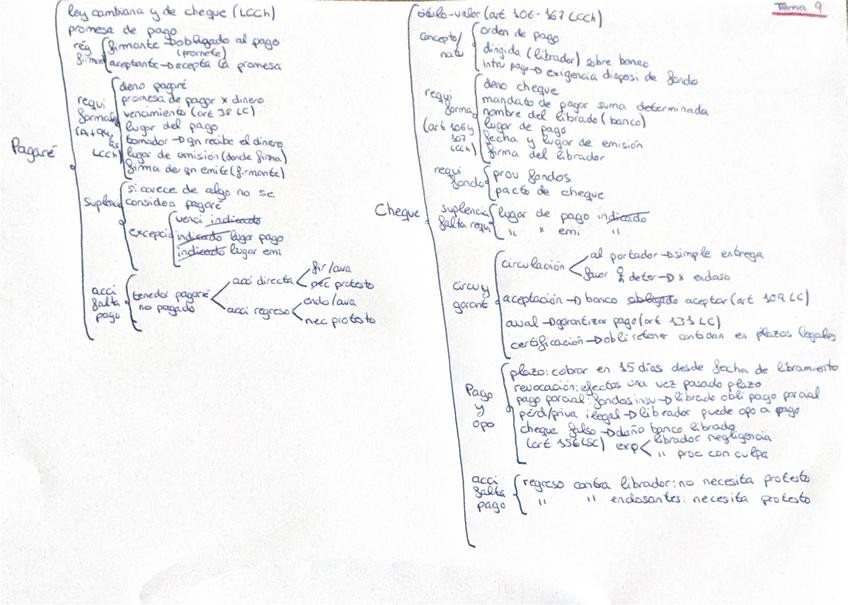 Tema 9
Pagaré
ley cambiaria y de cheque (LCCh)
promesa de pago
rég firma
firmante → obligado al pago
(promete)
aceptante → acepta la promesa
requi formal
LCCh
deno pagaré
promesa de pagar x dinero
vencimiento (art 38 LC)
lugar del pago
tomador → qn recibe el dinero
lugar de emision (donde firma)
firma de qn emite (firmante)
suplenc
si carece de algo no se
considera pagaré
excepci
venci indicado
indicado lugar pago
indicado lugar emi
acci falta pago
tenedor pagaré
no pagado
acci directa
fir/ava
nec protesto
acci regreso
endo/ava
nec protesto
Cheque
título-valor (art 106-167 LCCh)
concepto/
natu
orden de pago
dirigida (librador) sobre banco
intru pago → exigencia disposi de fondo
requi
forma
(art 106 y
107
LCCh)
deno cheque
mandato de pagar suma determinada
nombre del librado (banco)
lugar de pago
fecha y lugar de emisión
firma del librador
requi
fondo
prov fondos
pacto de cheque
suplencia
falta requi
lugar de pago indicado
" " emi "
circu y
garant
circulación
al portador → simple entrega
favor deter → x endoso
aceptación → banco obligado aceptar (art 109 LC)
aval → garantizar pago (art 131 LC)
certificación → obli retener cantidad en plazos legales
Pago
y
opo
plazo: cobrar en 15 días desde fecha de libramiento
revocación: efectos una vez pasado plazo
pago parcial: fondos insu → librado obli pago parcial
pérd/priva ilegal → librador puede opo a pago
cheque falso → daño banco librado
(art 156 LC) exp
librador negligencia
" proc con culpa
acci
falta
pago
regreso contra librador: no necesita protesto
" " endosantes: necesita protesto